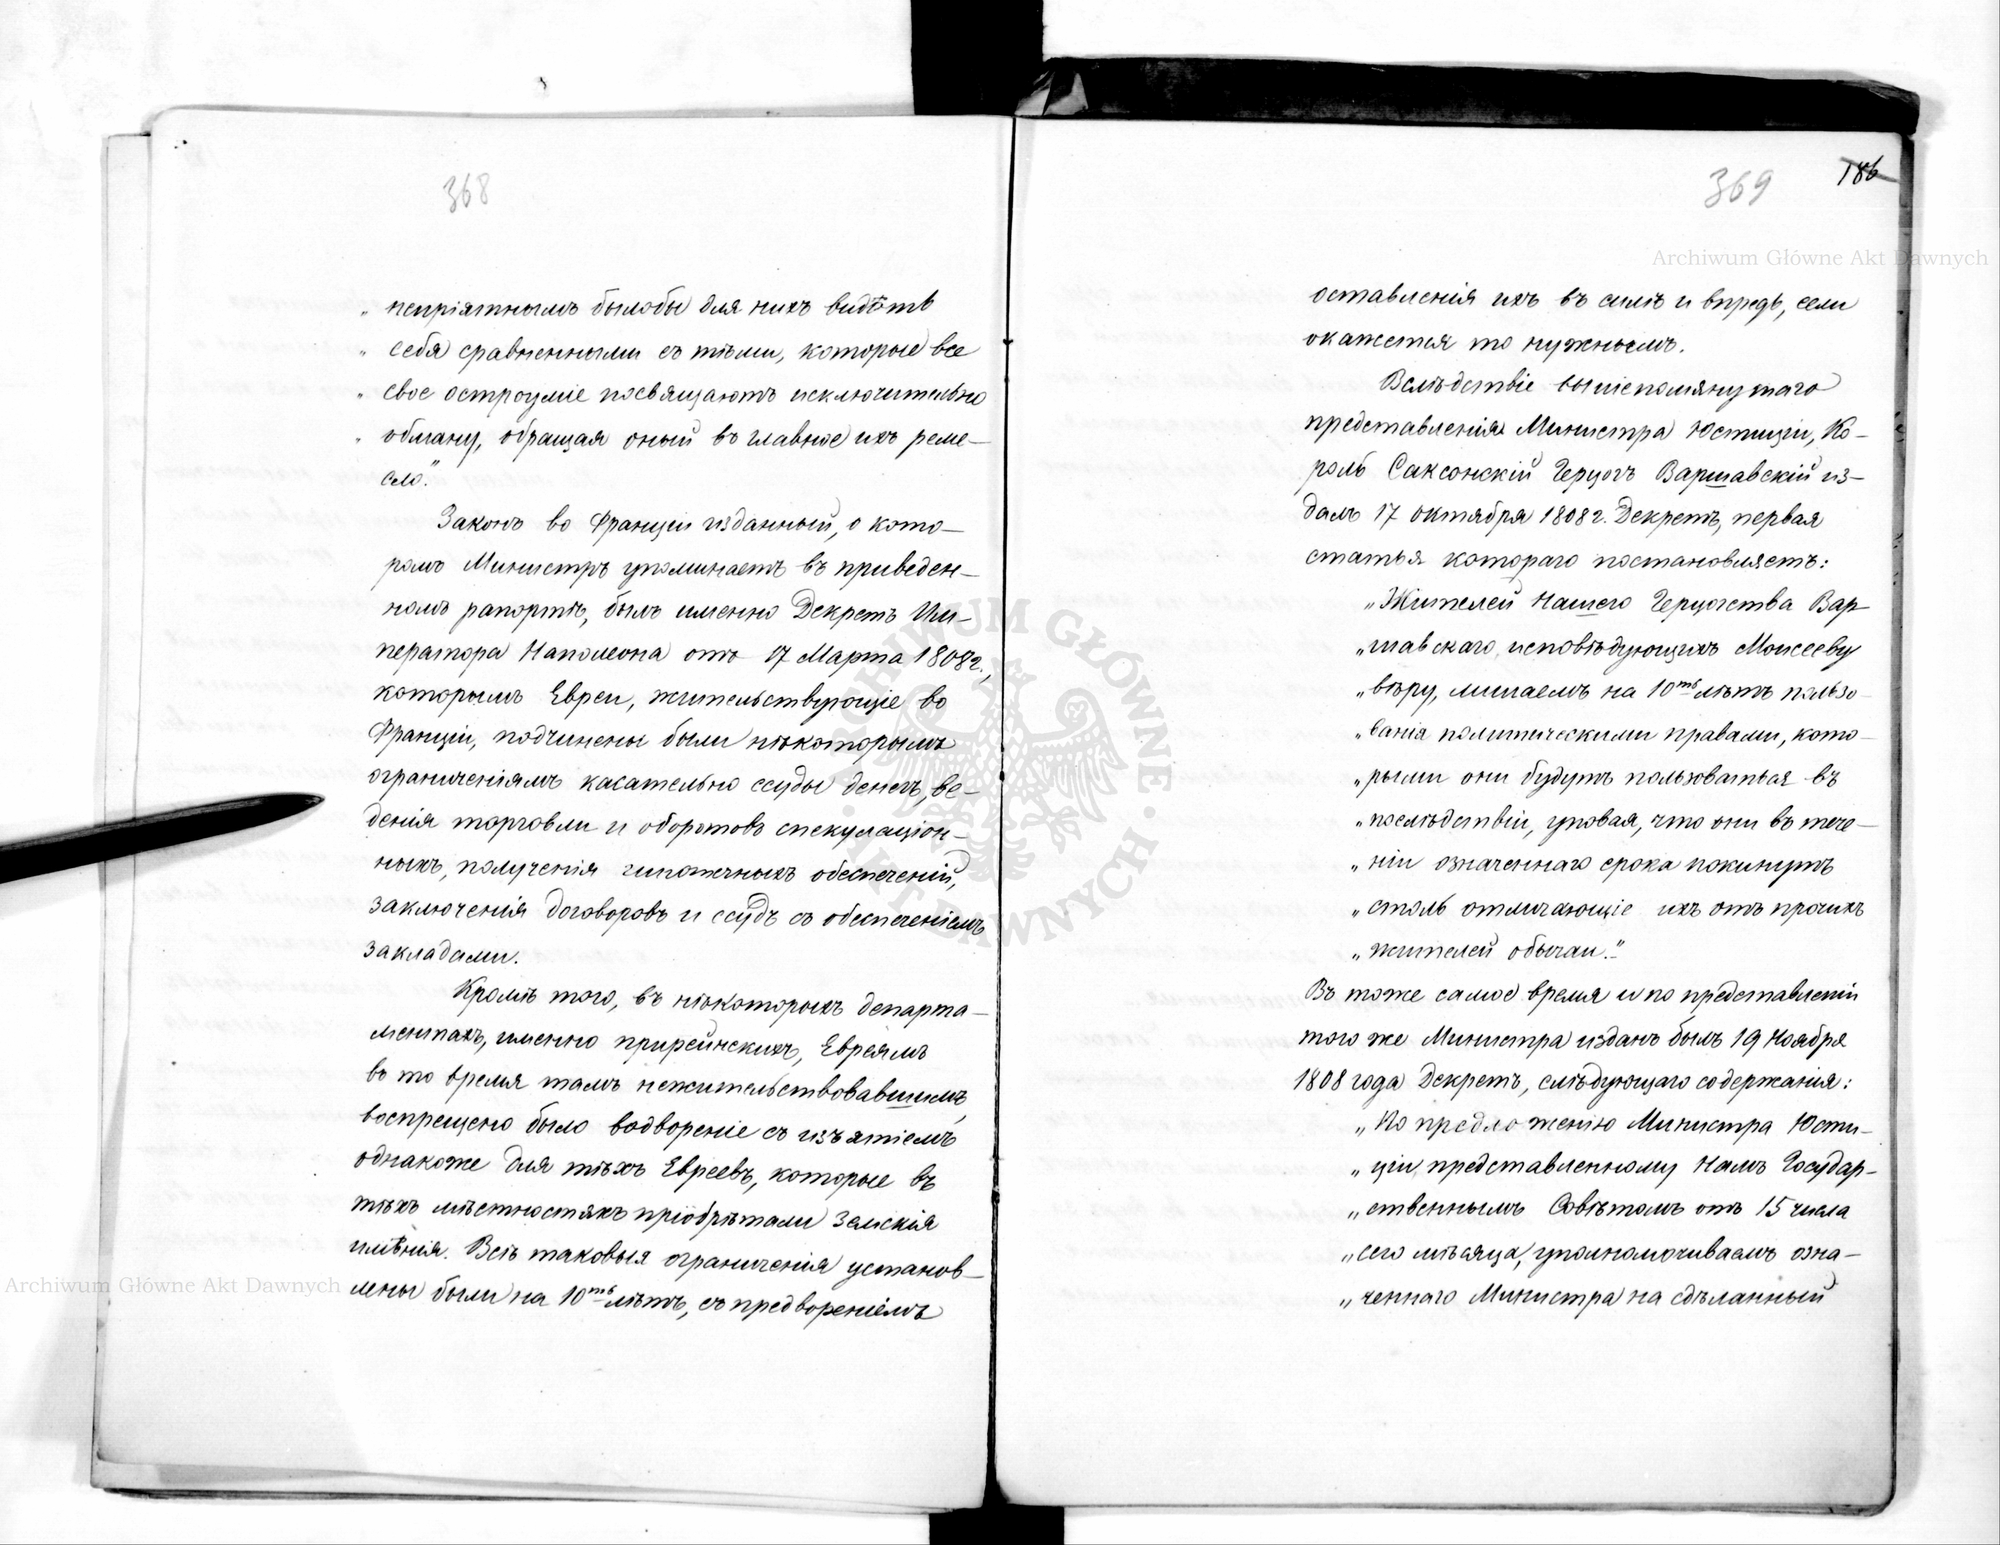 368
„ непріятнымъ былобы для нихъ видѣть
„ себя сравненными съ тѣми, которые все
„ свое остроуміе посвящаютъ исключительно
„ обману, обращая оный въ главное ихъ реме-
сло."
Законъ во Франціи изданный, о кото-
ромъ Министръ упоминаетъ въ приведен-
номъ рапортѣ, былъ именно Декретъ Им-
ператора Наполеона отъ 17 Марта 1808 г.,
которымъ Евреи, жительствующіе во
Франціи, подчинены были нѣкоторымъ
ограниченіямъ касательно ссуды денегъ, ве-
денія торговли и оборотовъ спекуляціон-
ныхъ, полученія гипотечныхъ обеспеченій,
заключенія договоровъ и ссудъ съ обеспеченіемъ
закладами.
Кромѣ того, въ нѣкоторыхъ департа-
ментахъ, именно прирейнскихъ, Евреямъ
въ то время тамъ нежительствовавшимъ,
воспрещено было водвореніе съ изъятіемъ
однакоже для тѣхъ Евреевъ, которые въ
тѣхъ мѣстностяхъ пріобрѣтали земскія
имѣнія. Всѣ таковыя ограниченія установ-
лены были на 10ть лѣтъ, съ предвореніемъ
369
186
оставленія ихъ въ силѣ и впредь, если
окажется то нужнымъ.
Вслѣдствіе вышепомянутаго
представленія Министра Юстиціи, Ко-
роль Саксонскій Герцогъ Варшавскій из-
далъ 17 октября 1808 г. Декретъ, первая
статья котораго постановляетъ:
„Жителей Нашего Герцогства Вар-
„шавскаго, исповѣдующихъ Моисееву
„вѣру, лишаемъ на 10ть лѣтъ пользо-
„ванія политическими правами, кото-
„рыми они будутъ пользоваться въ
„послѣдствіи, уповая, что они въ тече-
„ніи означеннаго срока покинутъ
„столь отличающіе ихъ отъ прочихъ
„жителей обычаи."
Въ тоже самое время и по представленіи
того же Министра изданъ былъ 19 Ноября
1808 года Декретъ, слѣдующаго содержанія:
„По предложенію Министра Юсти-
„ціи, представленному Намъ Государ-
„ственнымъ Совѣтомъ отъ 15 числа
„сего мѣсяца, уполномочиваемъ озна-
„ченнаго Министра на сдѣланный
Archiwum Główne Akt Dawnych
Archiwum Główne Akt Dawnych
ARCHIWUM GŁÓWNE AKT DAWNYCH